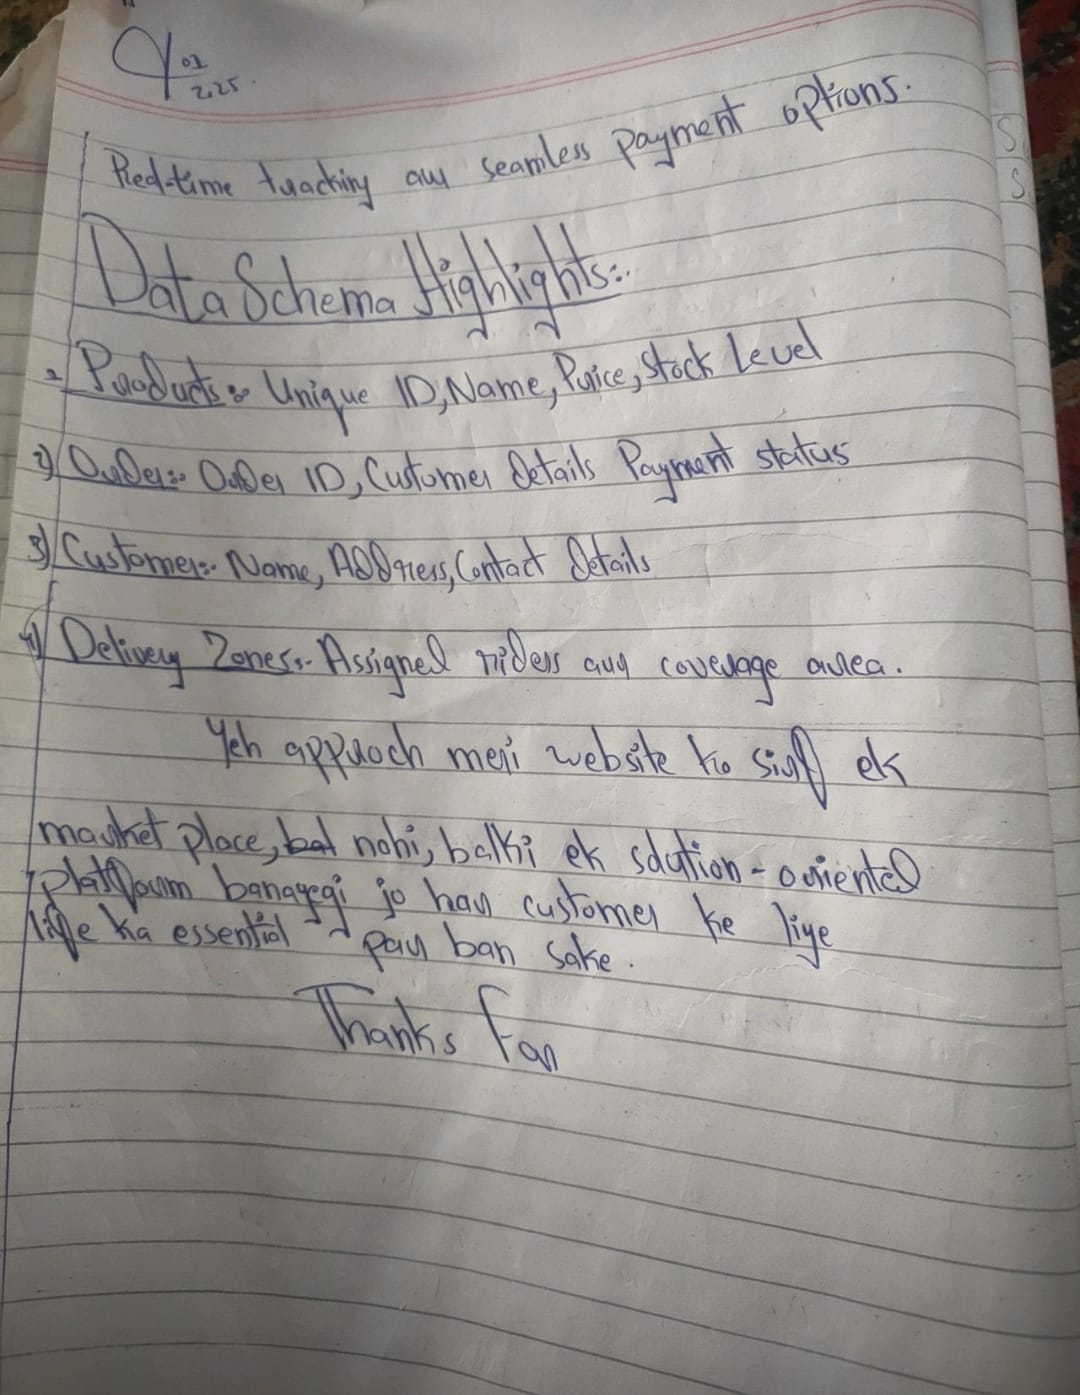 01
2025.
Real-time tracking aur seamless payment options.
Data Schema Highlights:.
Products:. Unique ID, Name, Price, Stock Level
2) Order:. Order ID, Customer Details Payment status
3) Customer:. Name, Address, Contact Details
4) Delivery Zones:. Assigned riders aur coverage area.
Yeh approch meri website ko sirf ek
market place, nahi, balki ek solution - oriented
platform banayegi jo har customer ke liye
life ka essential part ban sake.
Thanks For